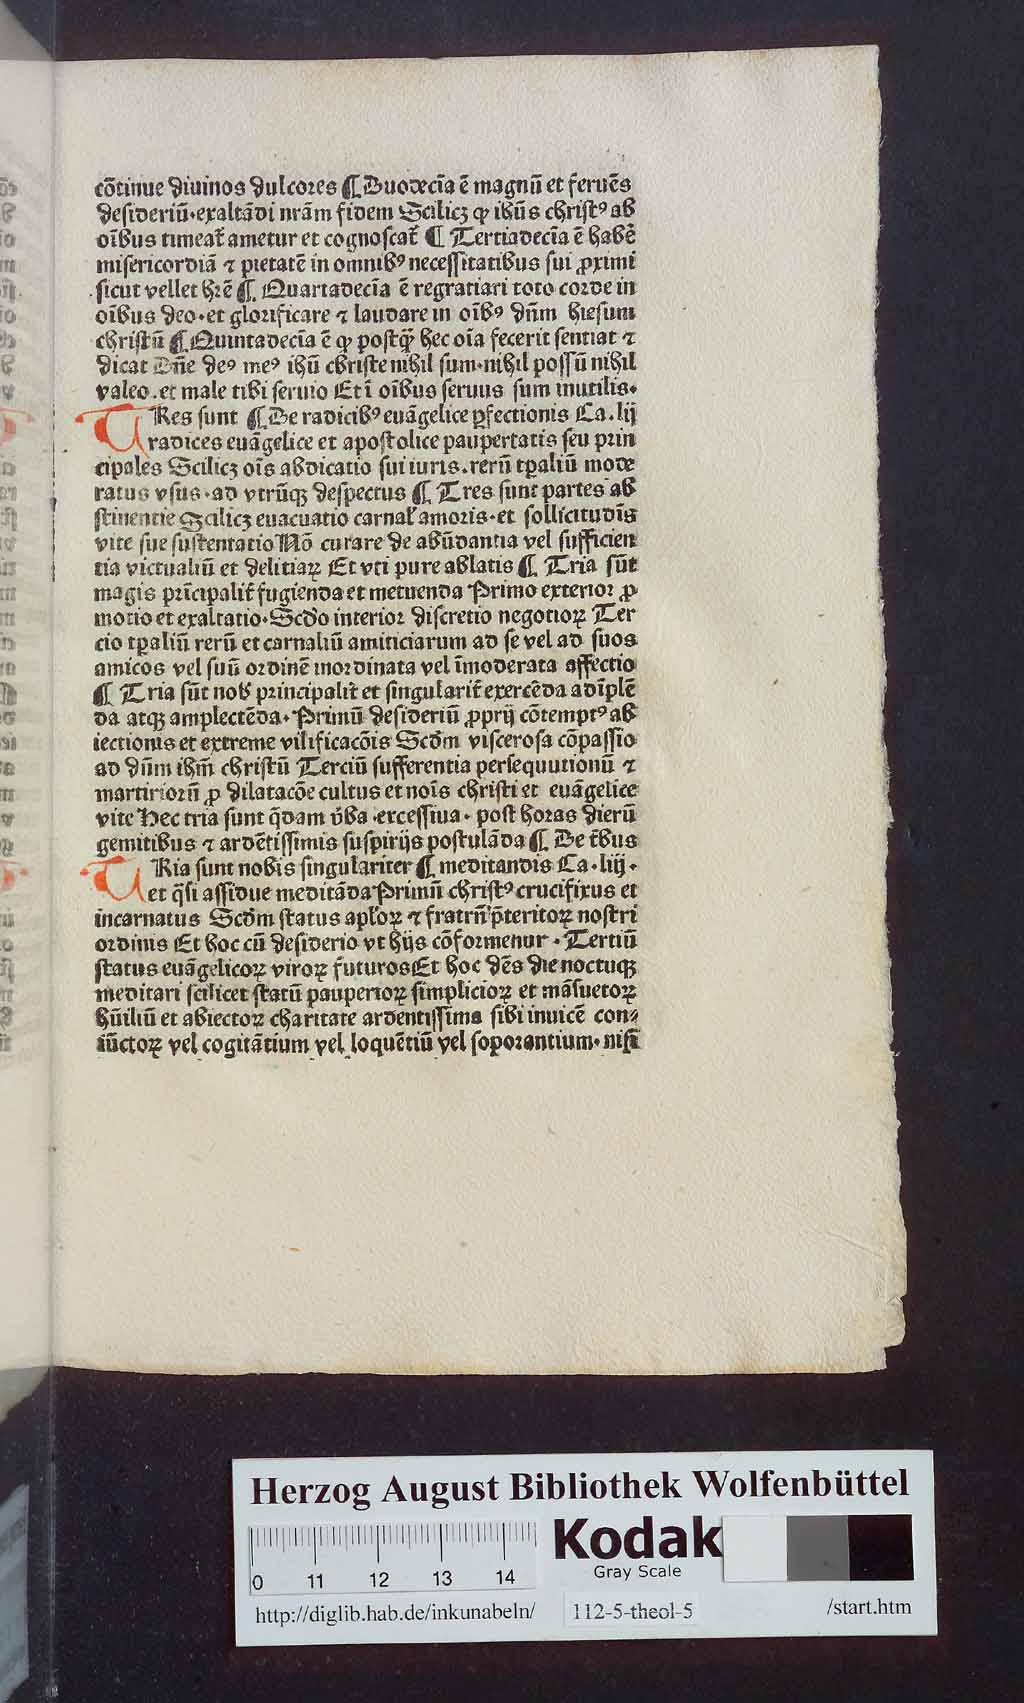 cōtinue diuinos dulcores ¶ Duodecīa ē magnū et feruēs
desideriū·exaltādi nrām fidem Scilicꝫ ꝙ ihūs christꝰ ab
oībus timeat̄ ametur et cognoscat̄ ¶ Tertiadecīa ē habē
misericordiā ⁊ pietatē in omnibꝰ necessitatibus sui ꝓximi
sicut vellet hrē ¶ Quartadecīa ē regratiari toto corde in
oībus deo·et glorificare ⁊ laudare in oībꝰ dn̄m hiesum
christū ¶ Quintadecīa ē ꝙ postq̄ʒ hec oīa fecerit sentiat ⁊
dicat Dn̄e deꝰ meꝰ ihū christe nihil sum·nihil possū nihil
valeo.et male tibi seruio Et ī oībus seruus sum inutilis·
TRes sunt ¶ De radicibꝰ euāgelice ꝑfectionis Ca.lij
radices euāgelice et apostolice paupertatis seu prin
cipales Scilicꝫ oīs abdicatio sui iuris.rerū tꝑaliū mode
ratus vsus·ad vtrūqꝫ despectus ¶ Tres sunt partes ab
stinentie Scilicꝫ euacuatio carnal̄ amoris·et sollicitudīs
vite sue sustentatio Nō curare de abūdantia vel sufficien
tia victualiū et delitiaꝝ Et vti pure ablatis ¶ Tria sūt
magis prīcipalit̄ fugienda et metuenda Primo exterior ꝓ
motio et exaltatio·Scd̄o interior discretio negotioꝝ Ter
cio tꝑaliū rerū et carnaliū amiticiarum ad se vel ad suos
amicos vel suū ordinē inordinata vel īmoderata affectio
¶ Tria sūt nob̄ principalit̄ et singularit̄ exercēda adīplē
da atqꝫ amplectēda·Primū desideriū ꝓprij cōtemptꝰ ab
iectionis et extreme vilificacōis Scd̄m viscerosa cōpassio
ad dn̄m ihm̄ christū Terciū sufferentia persequutionū ⁊
martiriorū ꝓ dilatacōe cultus et noīs christi et euāgelice
vite Hec tria sunt q̄dam v̄ba·excessiua·post horas dierū
gemitibus ⁊ ardētissimis suspirijs postulāda ¶ De tͥbus
TRia sunt nobis singulariter ¶ meditandis Ca·liij·
et q̄si assidue meditāda Primū christꝰ crucifixus et
incarnatus Scd̄m status apl̄oꝝ ⁊ fratrū p̄teritoꝝ nostri
ordinis Et hoc cū desiderio vt hijs cōformenur·Tertiū
status euāgelicoꝝ viroꝝ futuros Et hoc dēs die noctuqꝫ
meditari scilicet statū pauperioꝝ simplicioꝝ et māsuetoꝝ
hūiliū et abiectoꝝ charitate ardentissima sibi inuicē con⸗
iūctoꝝ vel cogitātium vel loquētiū vel soporantium·nisi
Herzog August Bibliothek Wolfenbüttel
Kodak
Gray Scale
0 11 12 13 14
http://diglib.hab.de/inkunabeln/ 112-5-theol-5 /start.htm